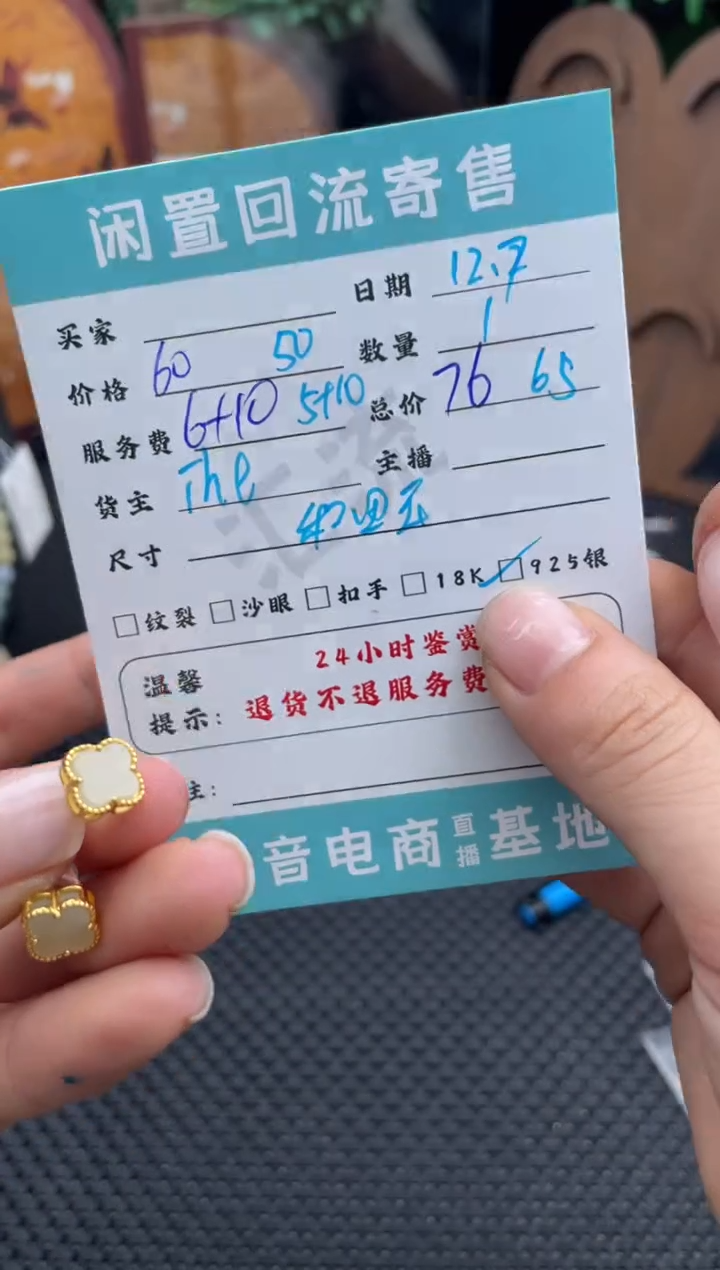 闲置回流寄售
买家 日期 12.7
价格 60 50 数量 1
服务费 6+10 5+10 总价 76 65
货主 主播
尺寸 和田玉
纹裂 沙眼 扣手 18K 925银
温馨 24小时鉴赏
提示: 退货不退服务费
主:
音电商直播基地
汇流